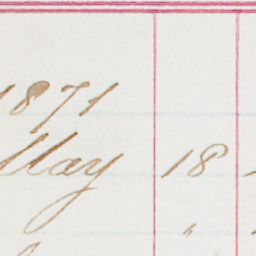 1871
May 18
"